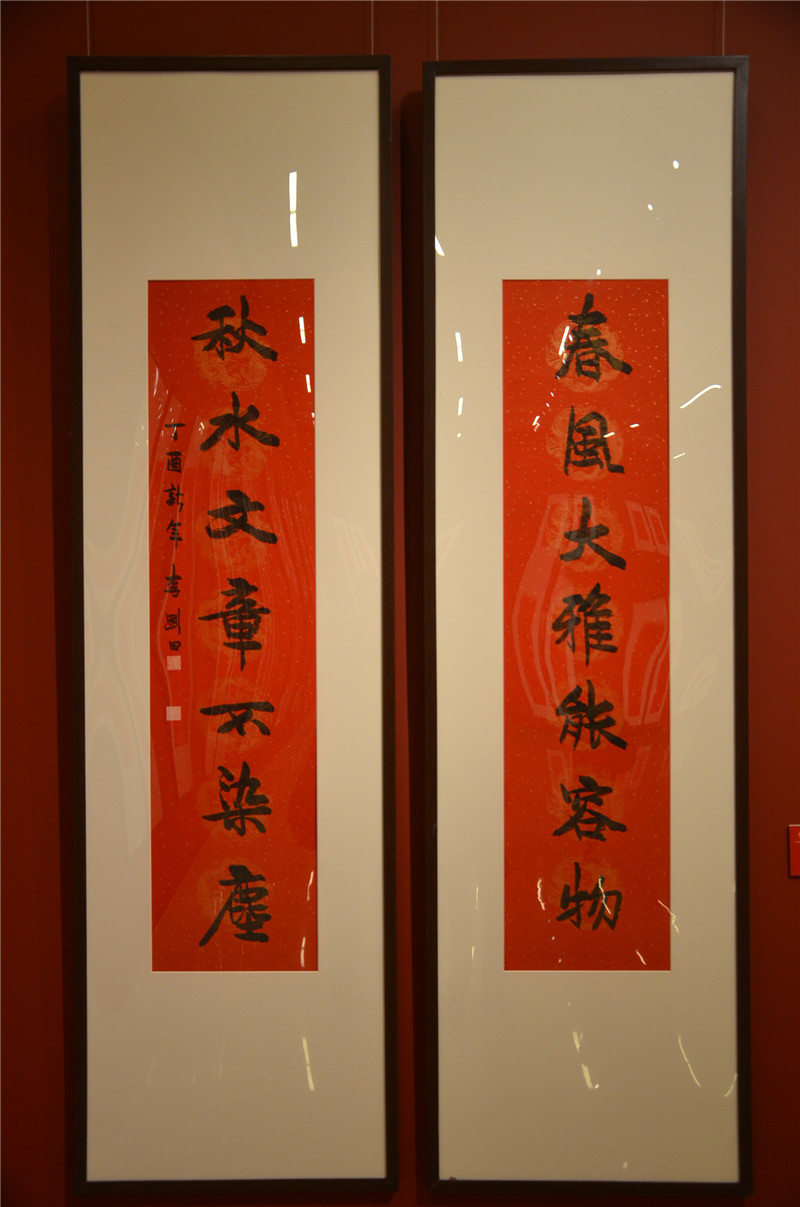 春風大雅能容物
秋水文章不染塵
丁酉新年李剛田